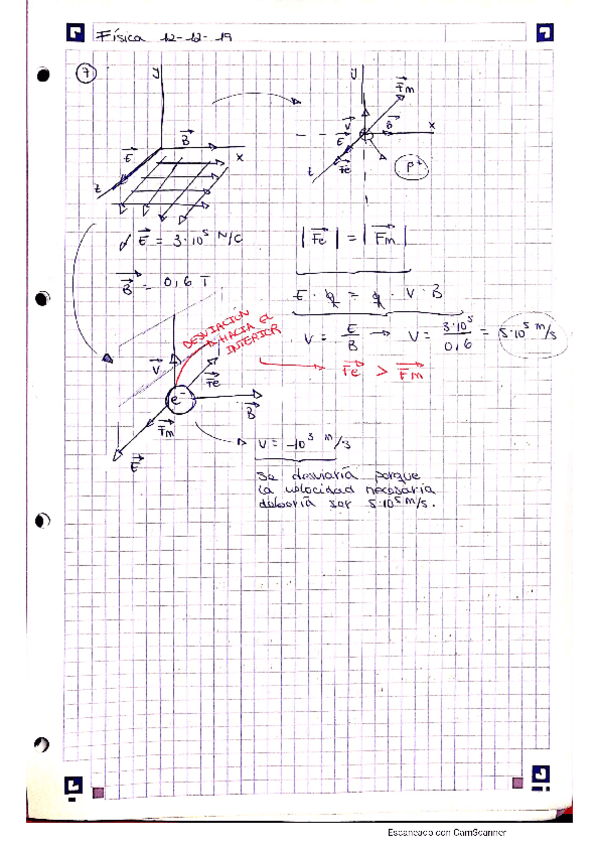 Física 12-12-19
7
y
B
E
x
z
E = 3·10⁵ N/C
B = 0,6 T
y
Fm
V
B
x
E
Fe
z
p+
|Fe| = |Fm|
E · q = q · V · B
V = E/B → V = 3·10⁵/0,6 = 5·10⁵ m/s
DESVIACIÓN
HACIA EL
INTERIOR
Fe > Fm
V
Fe
e-
B
Fm
E
V = 10³ m/s
Se desviaría porque
la velocidad necesaria
debería ser 5·10⁵ m/s.
Escaneado con CamScanner